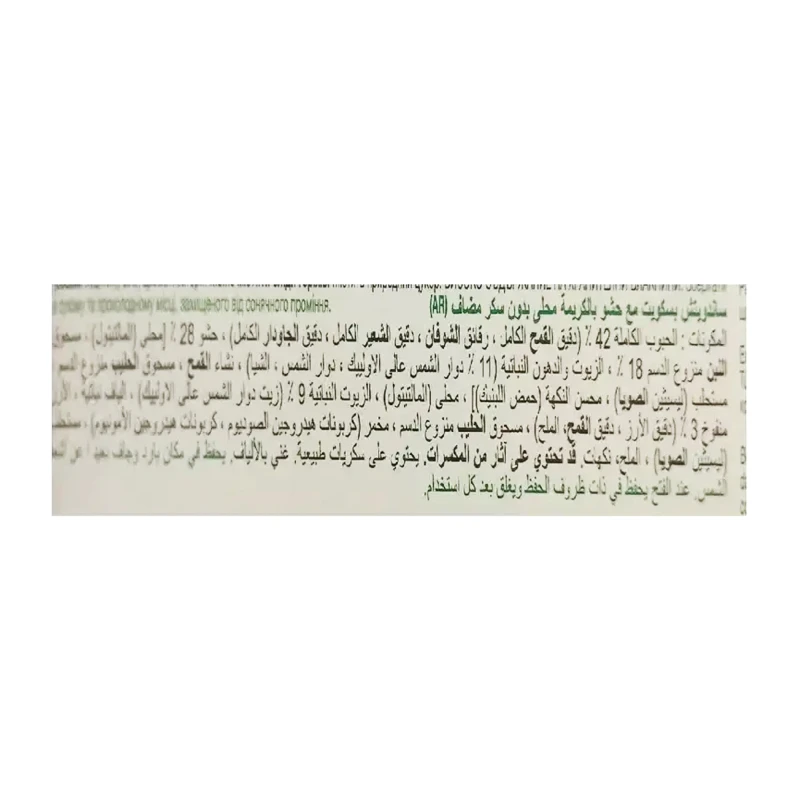 та прохолодному місці, захищеного від сонячного проміння.
ساندويتش بسكويت مع حشو بالكريمة محلى بدون سكر مضاف (AR)
المكونات : الحبوب الكاملة 42 ٪ (دقيق القمح الكامل ، رقائق الشوفان ، دقيق الشعير الكامل ، دقيق الجاودار الكامل) ، حشو 28 ٪ [محلي (المالتيتول) ، مسحوق
اللبن منزوع الدسم 18 ٪ ، الزيوت والدهون النباتية (11 ٪ دوار الشمس عالى الاولييك ، دوار الشمس ، الشيا) ، نشاء القمح ، مسحوق الحليب منزوع الدسم
مستحلب (ليسيثين الصويا) ، محسن النكهة (حمض اللبنيك)] ، محلى (المالتيتول) ، الزيوت النباتية 9 ٪ (زيت دوار الشمس عالى الاولييك) ، الياف نباتية ، الأرز
منفوخ 3 ٪ (دقيق الأرز ، دقيق القمح، الملح) ، مسحوق الحليب منزوع الدسم ، مخمر (كربونات هيدروجين الصوديوم ، كربونات هيدروجين الأمونيوم) ، مستحلب
(ليسيثين الصويا) ، الملح، نكهات. قد تحتوي على آثار من المكسرات. يحتوي على سكريات طبيعية. غني بالألياف. يحفظ في مكان بارد وجاف بعيدا عن
الشمس. عند الفتح يحفظ في ذات ظروف الحفظ ويغلق بعد كل استخدام.